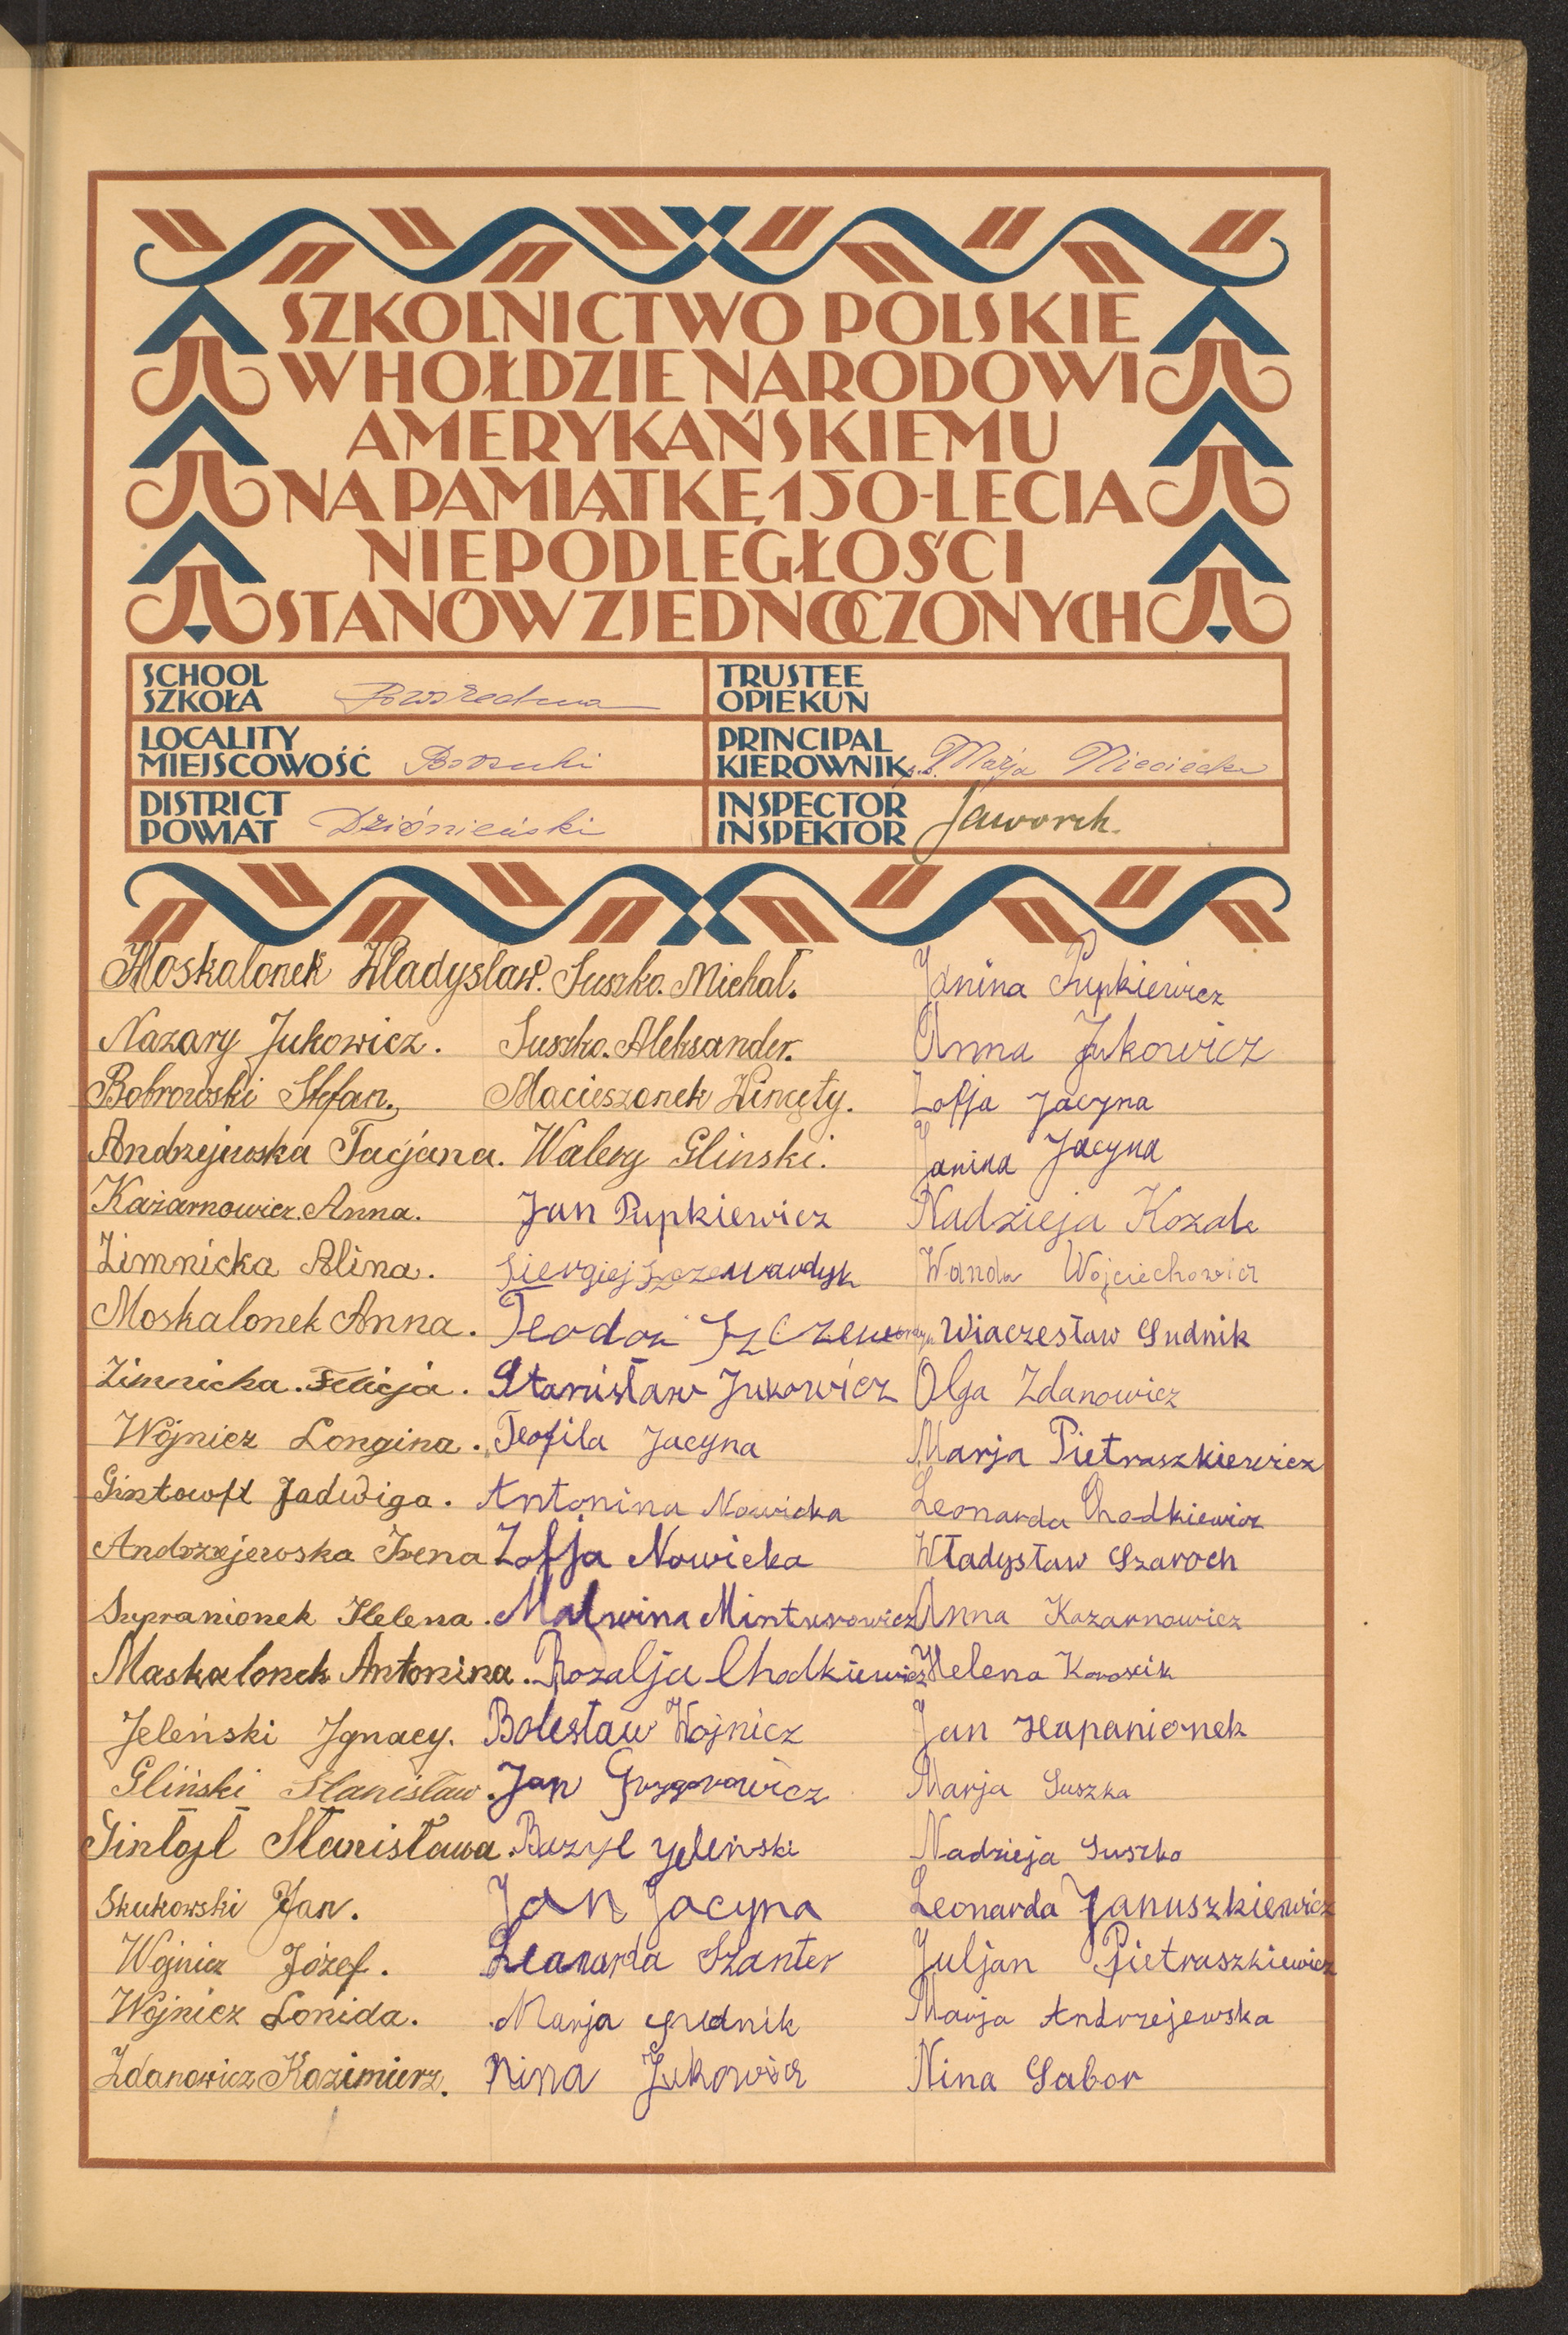 SZKOLNICTWO POLSKIE
W HOŁDZIE NARODOWI
AMERYKAŃSKIEMU
NA PAMIĄTKĘ 150-LECIA
NIEPODLEGŁOŚCI
STANÓW ZJEDNOCZONYCH
SCHOOL
SZKOŁA
TRUSTEE
OPIEKUN
LOCALITY
MIEJSCOWOŚĆ Borsuki
PRINCIPAL
KIEROWNIK Marja Nieciecka
DISTRICT
POWIAT Dziśnieński
INSPECTOR
INSPEKTOR Jaworek.
Moskalonek Władysław.
Nazary Jukowicz.
Bobrowski Stefan.
Andrzejewska Tacjana.
Kazarnowicz. Anna.
Zimnicka Alina.
Moskalonek Anna.
Zimnicka. Felicja.
Wójnicz Longina.
Gintowft Jadwiga.
Andrzejewska Irena
Supranionek Helena.
Maskalonek Antonina.
Jeleński Ignacy.
Gliński Stanisław.
Gintoft Stanisława.
Skukowski Jan.
Wojnicz Józef.
Wójnicz Lonida.
Zdanowicz Kazimierz.
Suszko. Michał.
Suszko. Aleksander.
Macieszonek Wincęty.
Walery Glinski.
Jan Pupkiewicz
Siergiej
Teodor
Stanisław Jukowicz
Teofila Jacyna
Antonina Nowicka
Zofja Nowicka
Malwina Minturowicz
Rozalja Chodkiewicz
Bolesław Wojnicz
Jan Grygorowicz
Bazyl Jeleński
Jan Jacyna
Leanarda Szanter
Marja Gudnik
Nina Jukowicz
Janina Pupkiewicz
Anna Jukowicz
Zofja Jacyna
Janina Jacyna
Nadzieja Kozak
Wanda Wojciechowicz
Wiaczesław Gudnik
Olga Zdanowicz
Marja Pietraszkiewicz
Leonarda Chodkiewicz
Władysław Szaroch
Anna Kazarnowicz
Helena
Jan Hapanionek
Marja Suszka
Nadzieja Suszko
Leonarda Januszkiewicz
Juljan Pietraszkiewicz
Marja Andrzejewska
Nina Gabor